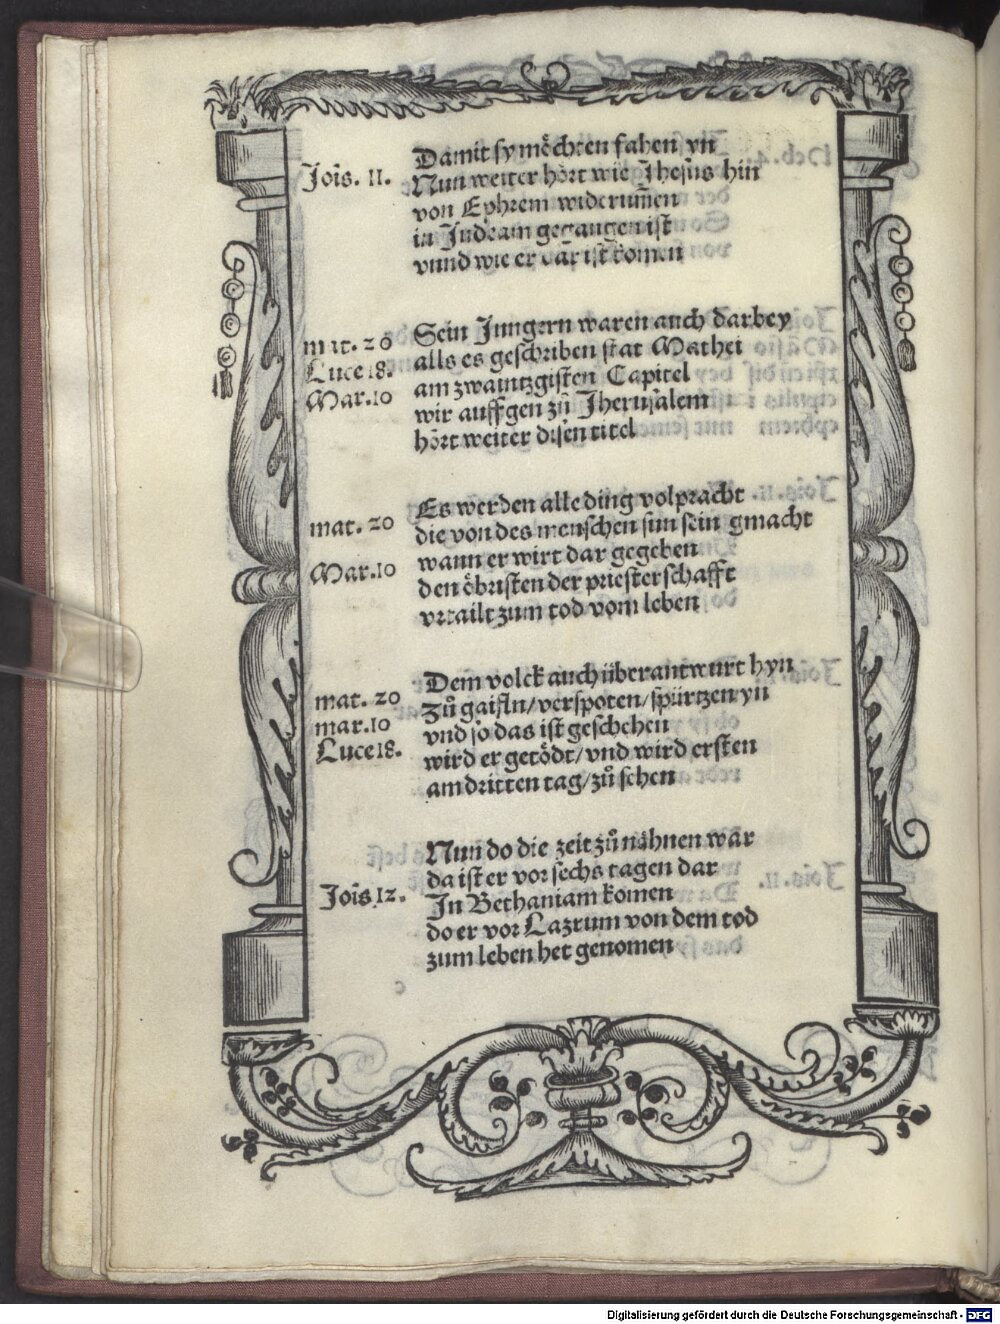 Damit sy möchten fahen yn
Jois. 11. Nun weiter hört wie Jhesus hin
von Ephrem widerum̄en
in Judeam gegangen ist
vnnd wie er dar ist komen
Sein Jungern waren auch darbey
mat. 20 alls es geschriben stat Mathei
Luce 18. am zwaintzgisten Capitel
Mar. 10 wir auffgen zů Jherusalem
hört weiter disen titel
Es werden alle ding volpracht
mat. 20 die von des menschen sun sein gmacht
wann er wirt dar gegeben
Mar. 10 den öbristen der priesterschafft
vrtailt zum tod vom leben
Dem volck auch überantwurt hyn
mat. 20 zů gaisln/verspoten/spürtzen yn
mar. 10 vnd so das ist geschehen
Luce 18. wird er getödt/vnd wird ersten
am dritten tag/zů sehen
Nun do die zeit zů nähnen war
da ist er vor sechs tagen dar
Jois 12. In Bethaniam komen
do er vor Lazrum von dem tod
zum leben het genomen
Digitalisierung gefördert durch die Deutsche Forschungsgemeinschaft - DFG